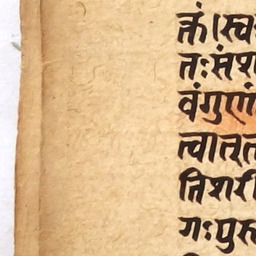 क्तं।स्व
तःसंश
वंगुणं
त्वात्त
त्तिशरी
गःपुरु